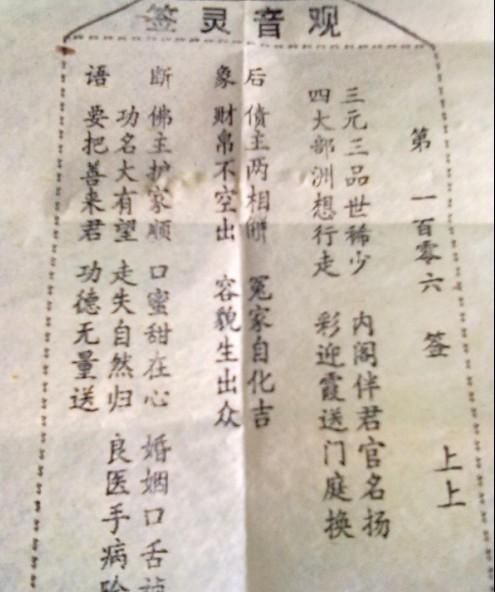 观音灵签
第一百零六签 上上
三元三品世稀少 内阁伴君官名扬
四大部洲想行走 彩迎霞送门庭换
后 债主两相 冤家自化吉
象 财帛不空出 容貌生出众
断 佛主护家顺 口蜜甜在心 婚姻口舌
语 功名大有望 走失自然归 良医手病
要把善来君 功德无量送